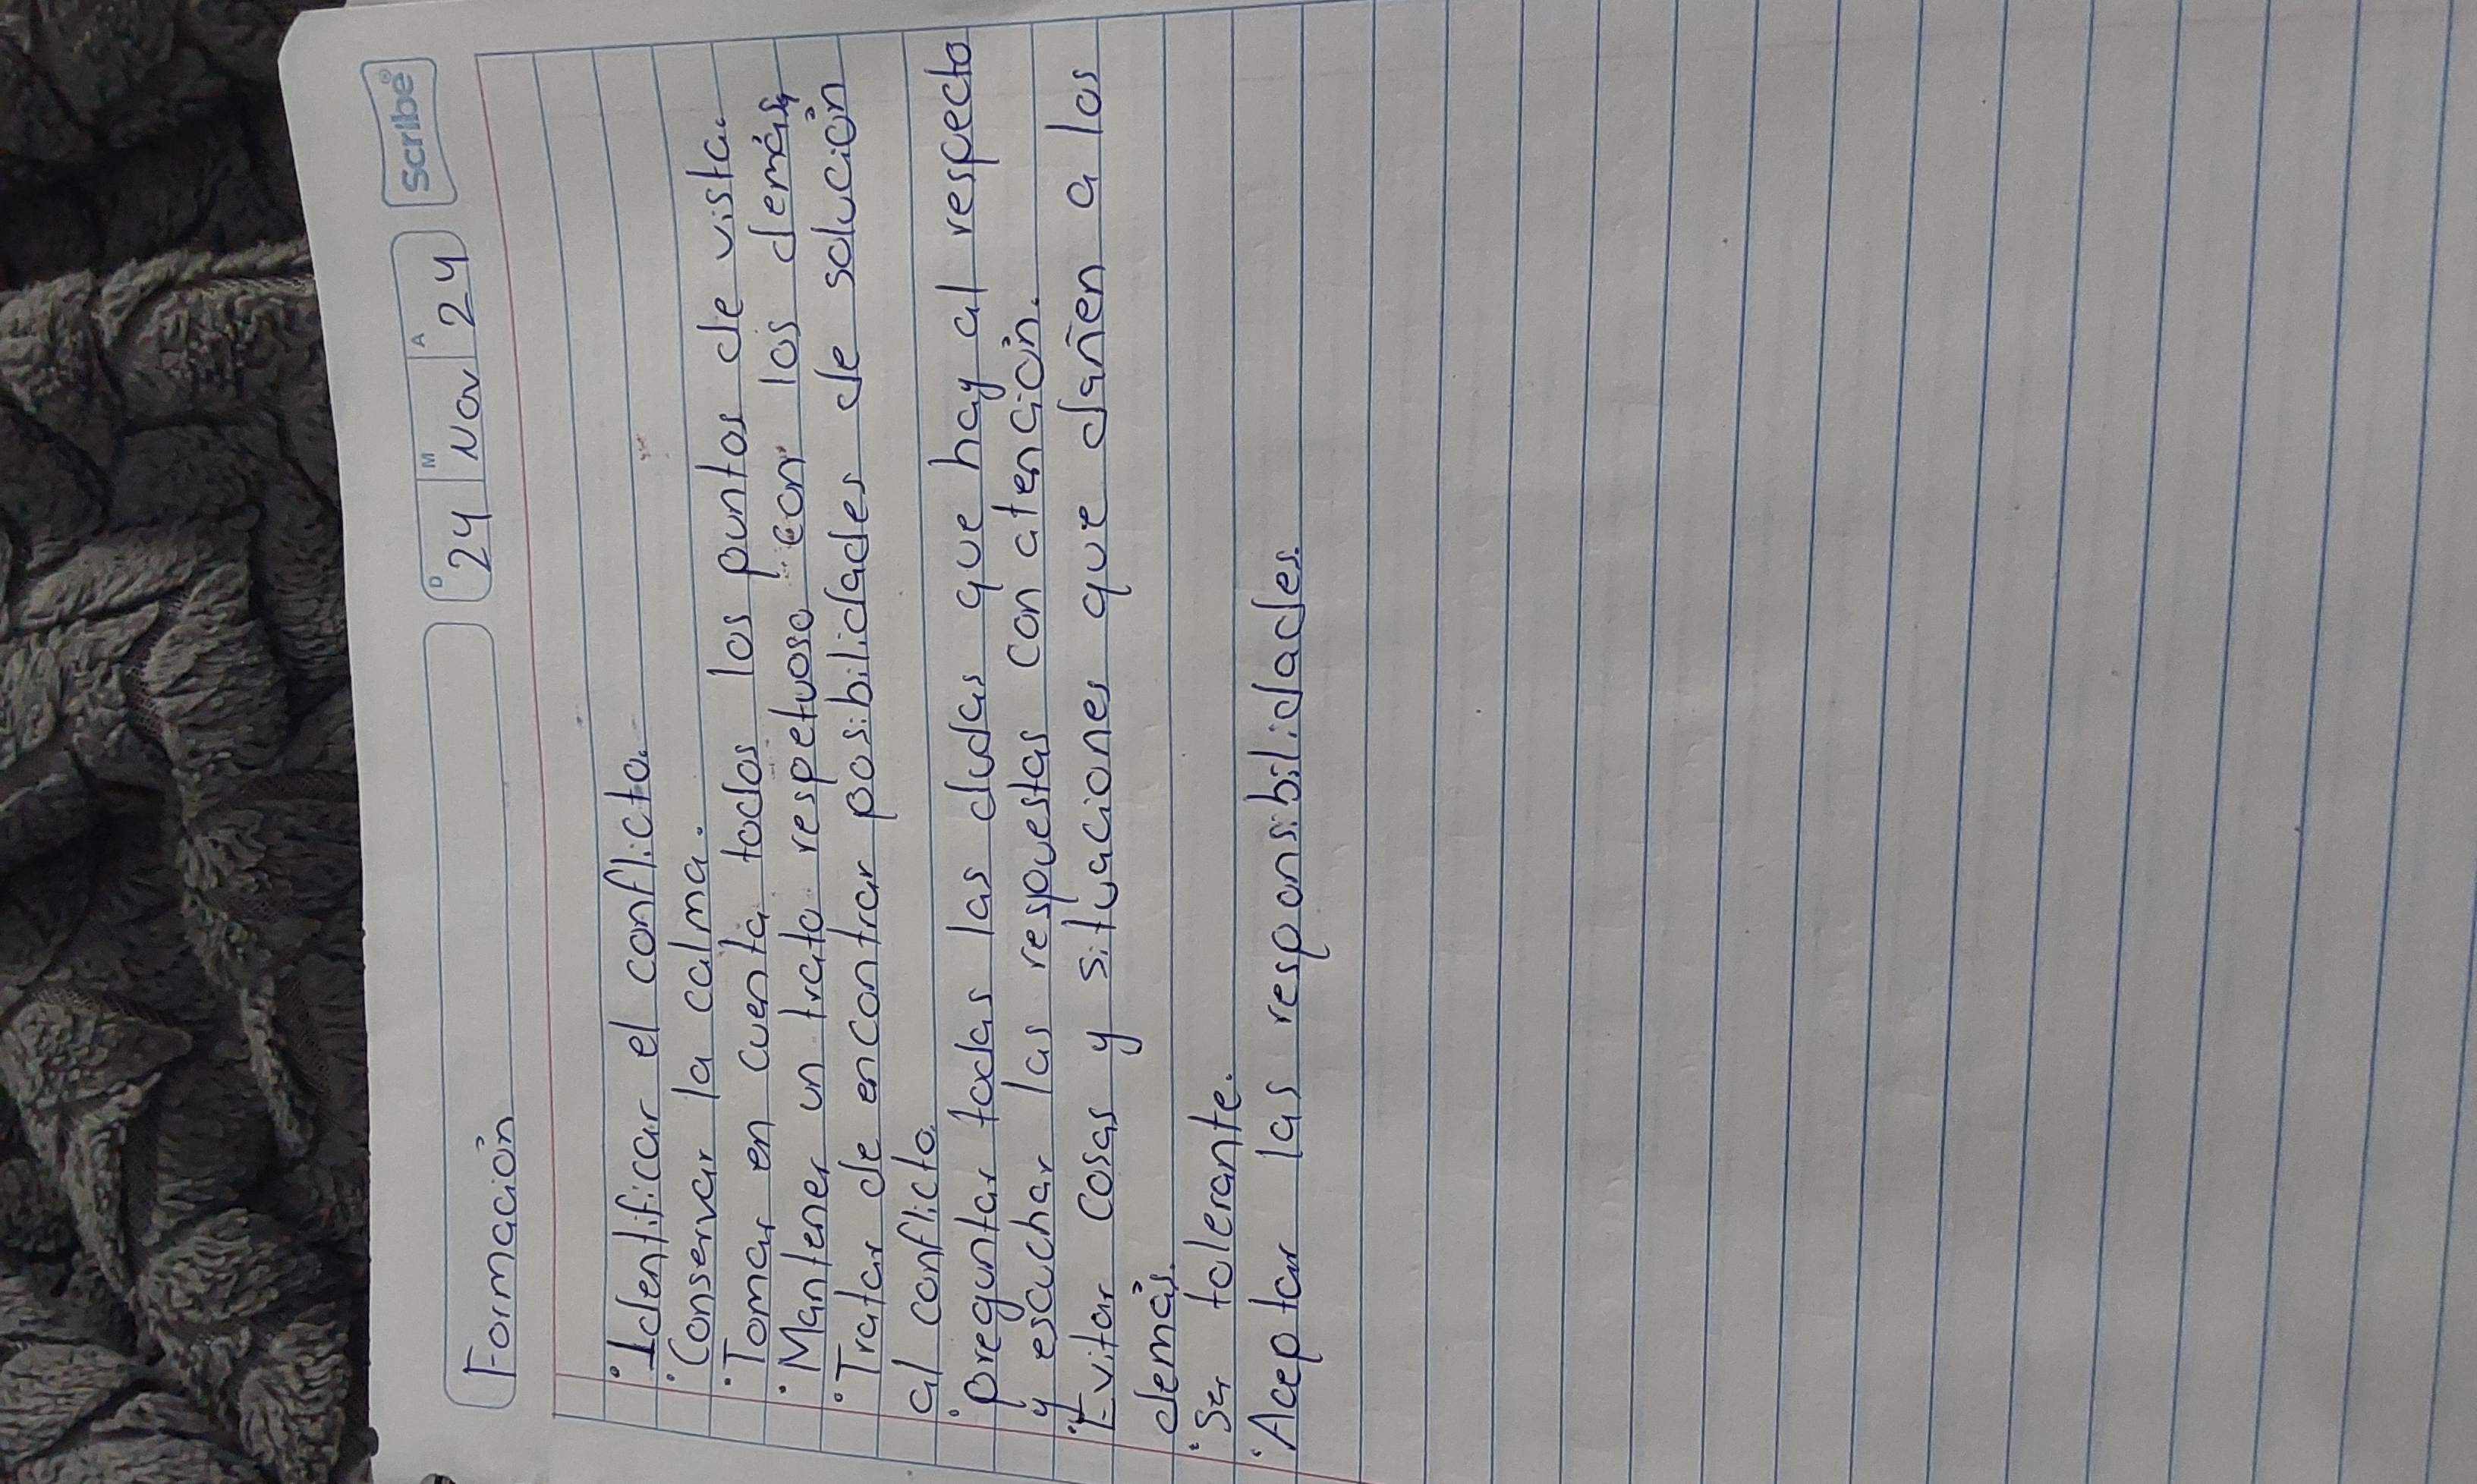 Formación
D M A
24 Nov 24
Scribe®
• Identificar el conflicto.
• Conservar la calma.
• Tomar en cuenta todos los puntos de vista.
• Mantener un trato respetuoso con los demás.
• Tratar de encontrar posibilidades de solución
al conflicto.
• preguntar todas las dudas que hay al respecto
y escuchar las respuestas con atención.
• Evitar cosas y situaciones que dañen a los
demás.
• Ser tolerante.
• Aceptar las responsibilidades.